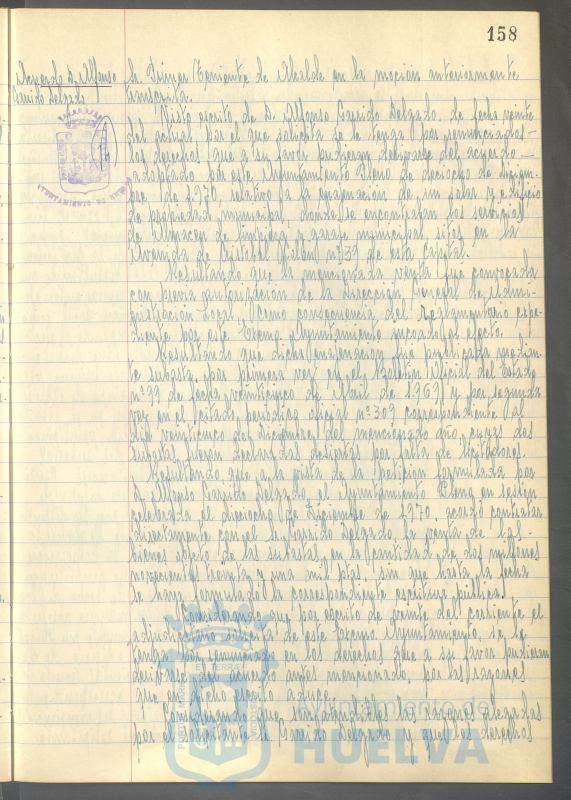 158
Acuerdo D. Alfonso
Garrido Delgado
de Primer Teniente de Alcalde en la moción anteriormente
transcrita.
Visto escrito de D. Alfonso Garrido Delgado, de fecha veinte
del actual, por el que solicita se le tenga por renunciado a
los derechos que a su favor pudieran derivarse del acuerdo
adoptado por este Ayuntamiento Pleno de dieciocho de Diciem-
bre de 1.970, relativo a la enajenación de un solar y edificio
de propiedad municipal, donde se encontraban los servicios
de Almacén de limpieza y garaje municipal, sitos en la
Avenida de Cristobal Colón nº 39 de esta Capital.
Resultando que la mencionada venta fue convocada
con previa autorización de la Dirección General de Admi-
nistración Local, como consecuencia del reglamentario expe-
diente por este Excmo. Ayuntamiento incoado al efecto.
Resultando que dicha enajenación fue publicada median-
te subasta, por primera vez en el Boletín Oficial del Estado
nº 99 de fecha veinticinco de Abril de 1.969 y por segunda
vez en el citado periódico oficial nº 309 correspondiente al
día veinticinco de Diciembre del mencionado año, cuyas dos
subastas fueron declaradas desiertas por falta de licitadores.
Resultando que a la vista de la petición formulada por
D. Alfonso Garrido Delgado, el Ayuntamiento Pleno en sesión
celebrada el dieciocho de Diciembre de 1.970, acordó contratar
directamente con el Sr. Garrido Delgado, la venta de los
bienes objeto de las subastas, en la cantidad de dos millones
novecientas treinta y una mil ptas., sin que hasta la fecha
se haya formulado la correspondiente escritura pública.
Considerando que por escrito de veinte del corriente el
adjudicatario solicita de este Excmo. Ayuntamiento, se le
tenga por renunciado en los derechos que a su favor pudieran
derivarse del acuerdo antes mencionado, por las razones
que en dicho escrito aduce.
Considerando que, las razones alegadas
por el solicitante Sr. Garrido Delgado y que los derechos
AYUNTAMIENTO DE HUELVA
Ayuntamiento de
HUELVA